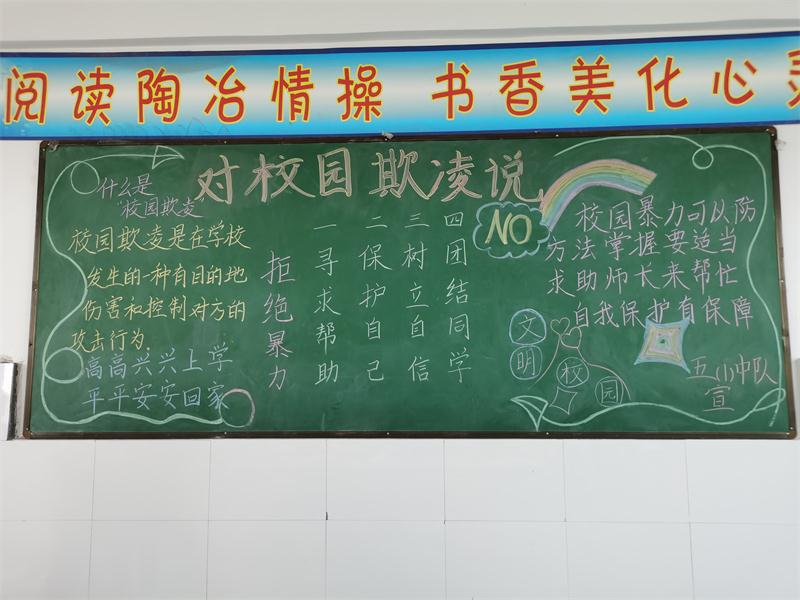 阅读陶冶情操 书香美化心灵
对校园欺凌说
NO
什么是
"校园欺凌"
校园欺凌是在学校
发生的一种有目的地
伤害和控制对方的
攻击行为.
高高兴兴上学
平平安安回家
拒绝暴力
一寻求帮助
二保护自己
三树立自信
四团结同学
校园暴力可以防
方法掌握要适当
求助师长来帮忙
自我保护有保障
文
明
校
园
五(1)中队
宣